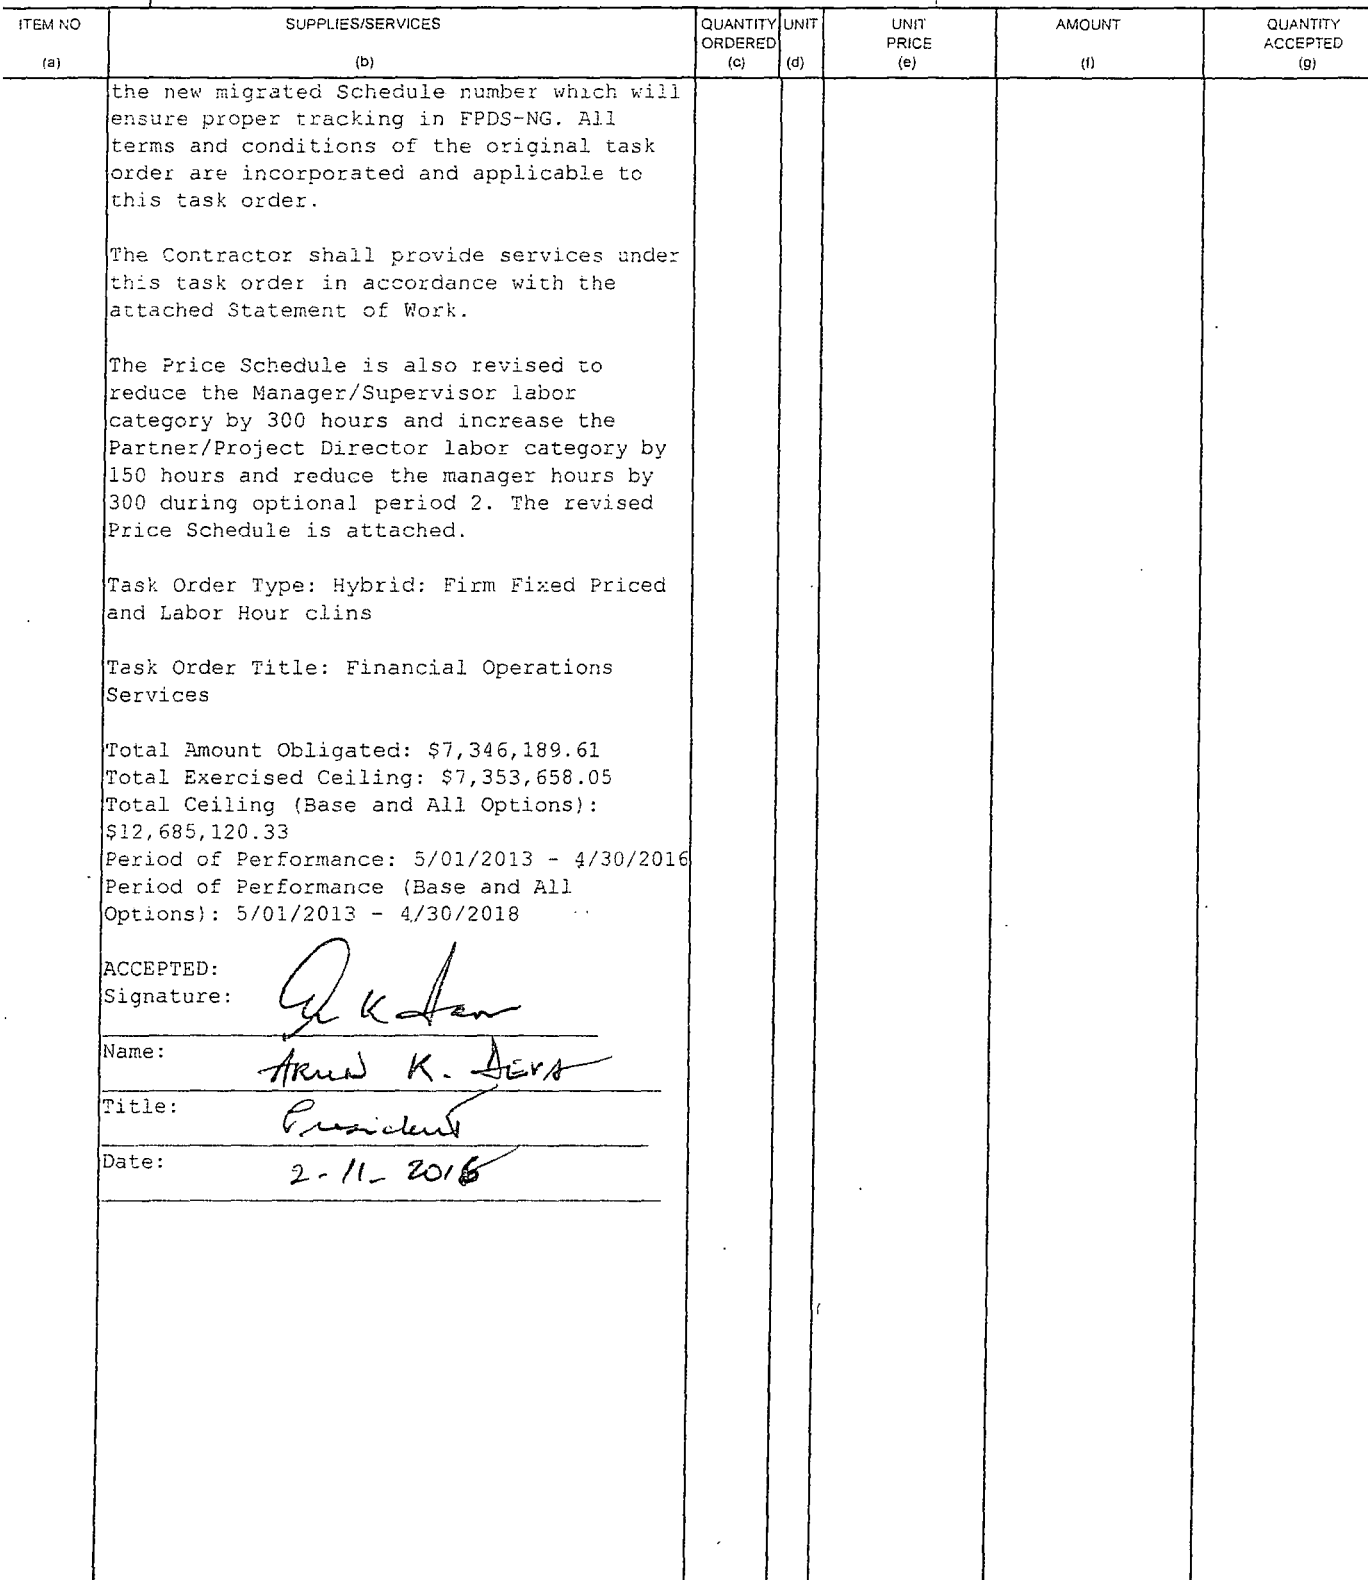 ITEM NO SUPPLIES/SERVICES QUANTITY UNIT UNIT AMOUNT QUANTITY
ORDERED PRICE ACCEPTED
(a) (b) (c) (d) (e) (f) (g)
the new migrated Schedule number which will
ensure proper tracking in FPDS-NG. All
terms and conditions of the original task
order are incorporated and applicable to
this task order.
The Contractor shall provide services under
this task order in accordance with the
attached Statement of Work.
The Price Schedule is also revised to
reduce the Manager/Supervisor labor
category by 300 hours and increase the
Partner/Project Director labor category by
150 hours and reduce the manager hours by
300 during optional period 2. The revised
Price Schedule is attached.
Task Order Type: Hybrid: Firm Fixed Priced
and Labor Hour clins
Task Order Title: Financial Operations
Services
Total Amount Obligated: $7,346,189.61
Total Exercised Ceiling: $7,353,658.05
Total Ceiling (Base and All Options):
$12,685,120.33
Period of Performance: 5/01/2013 - 4/30/2016
Period of Performance (Base and All
Options): 5/01/2013 - 4/30/2018
ACCEPTED:
Signature:
Name: ARUN K. DEVA
Title: President
Date: 2-11-2016